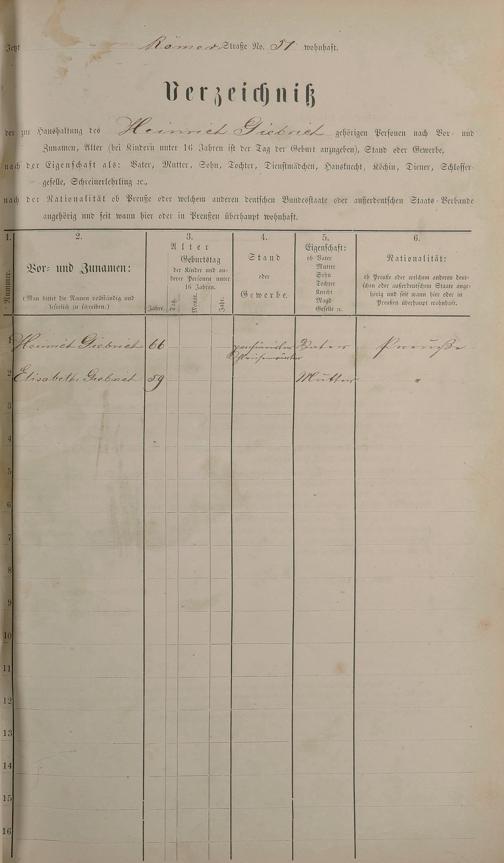 Jetzt Römer Straße No. 51 wohnhaft.
Verzeichniß
der zur Haushaltung des Heinrich Giebrich gehörigen Personen nach Vor- und
Zunamen, Alter (bei Kindern unter 16 Jahren ist der Tag der Geburt anzugeben), Stand oder Gewerbe,
nach der Eigenschaft als: Vater, Mutter, Sohn, Tochter, Dienstmädchen, Hausknecht, Köchin, Diener, Schlosser-
geselle, Schreinerlehrling ꝛc.,
nach der Nationalität ob Preuße oder welchem anderen deutschen Bundesstaate oder außerdeutschen Staats-Verbande
angehörig und seit wann hier oder in Preußen überhaupt wohnhaft.
1.
Nummer.
2.
Vor- und Zunamen:
(Man bittet die Namen vollständig und
leserlich zu schreiben.)
3.
Alter
Geburtstag
der Kinder und an-
derer Personen unter
16 Jahren.
Jahre. Tag. Monat. Jahr.
4.
Stand
oder
Gewerbe.
5.
Eigenschaft:
ob Vater
Mutter
Sohn
Tochter
Knecht
Magd
Geselle ꝛc.
6.
Nationalität:
ob Preuße oder welchem anderen deut-
schen oder außerdeutschen Staate ange-
hörig und seit wann hier oder in
Preußen überhaupt wohnhaft.
1 Heinrich Giebrich 66 Vater Preuße
2 Elisabeth Giebrich 59 Mutter "
3
4
5
6
7
8
9
10
11
12
13
14
15
16